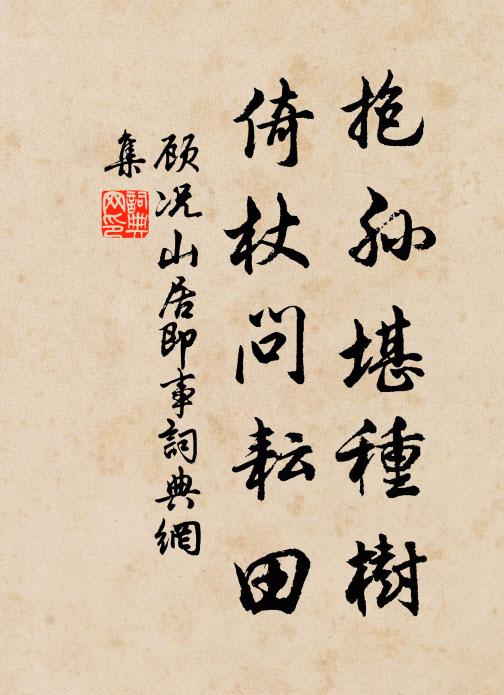 抱孫堪種樹
倚杖問耘田
顧况山居即事詞典網
集
詞典
网印